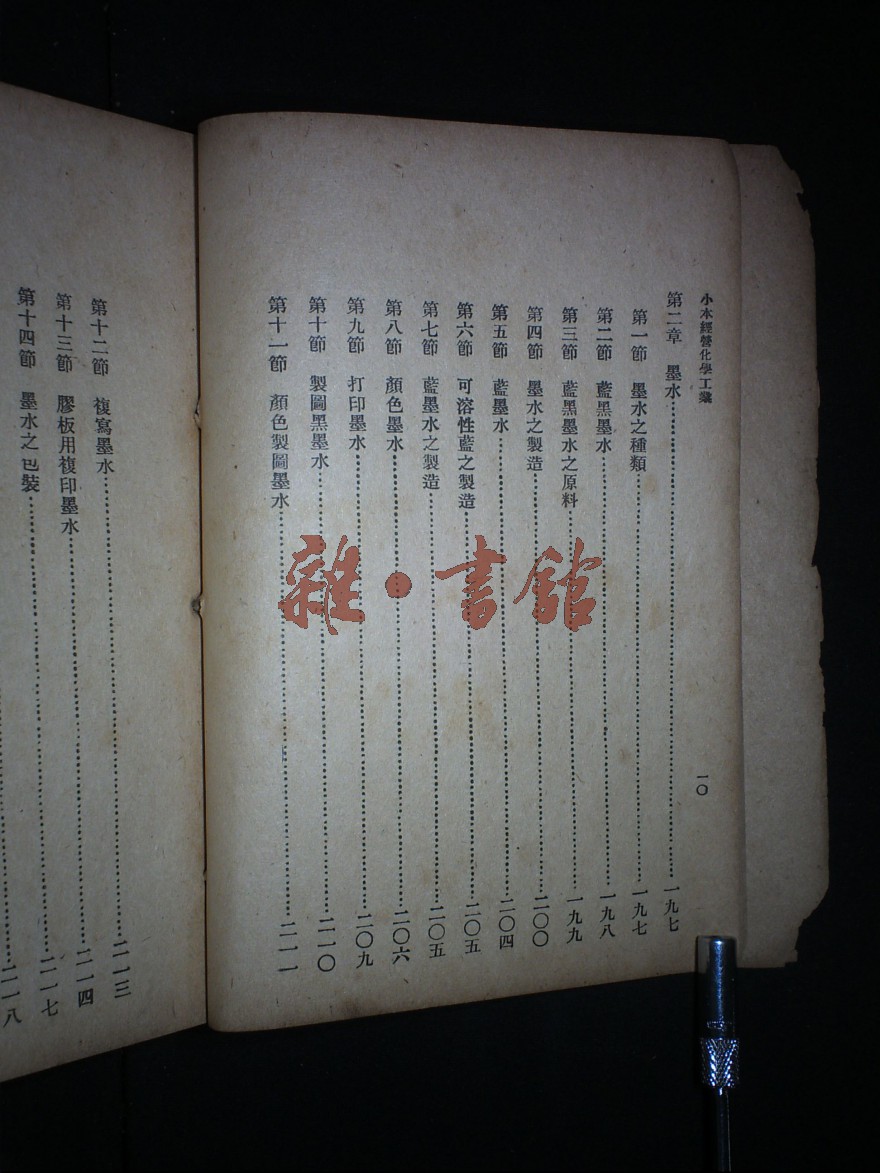 小本經營化學工業
一〇
第二章 墨水……一九七
第一節 墨水之種類……一九七
第二節 藍黑墨水……一九八
第三節 藍黑墨水之原料……一九九
第四節 墨水之製造……二〇〇
第五節 藍墨水……二〇四
第六節 可溶性藍之製造……二〇五
第七節 藍墨水之製造……二〇五
第八節 顏色墨水……二〇六
第九節 打印墨水……二〇九
第十節 製圖黑墨水……二一〇
第十一節 顏色製圖墨水……二一一
第十二節 複寫墨水……二一三
第十三節 膠板用複印墨水……二一四
第十四節 墨水之包裝……二一七
……二一八
雜·書館